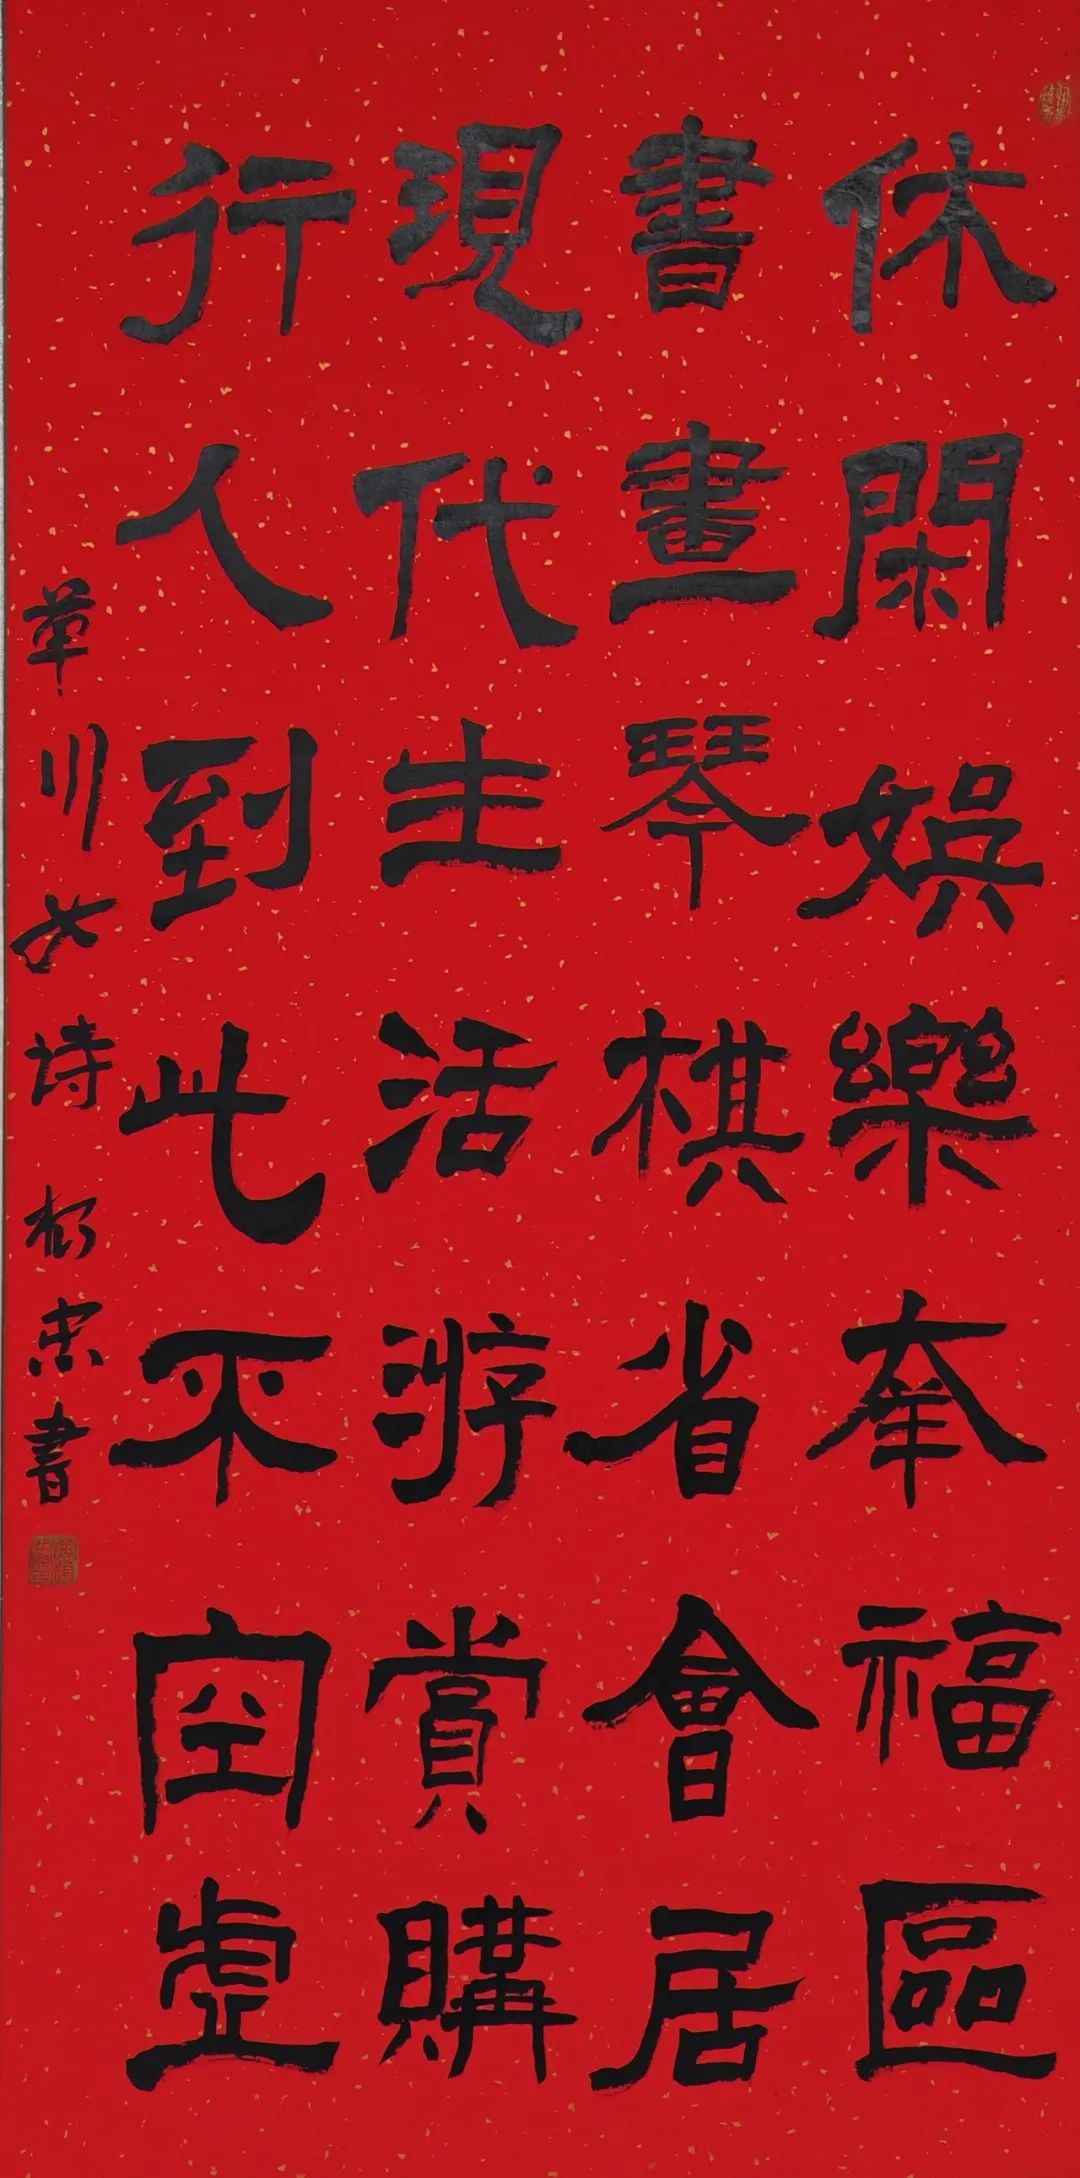 休閑娛樂奉福區
書畫琴棋省會居
現代生活游賞購
行人到此不空虛
華川女詩 忠書